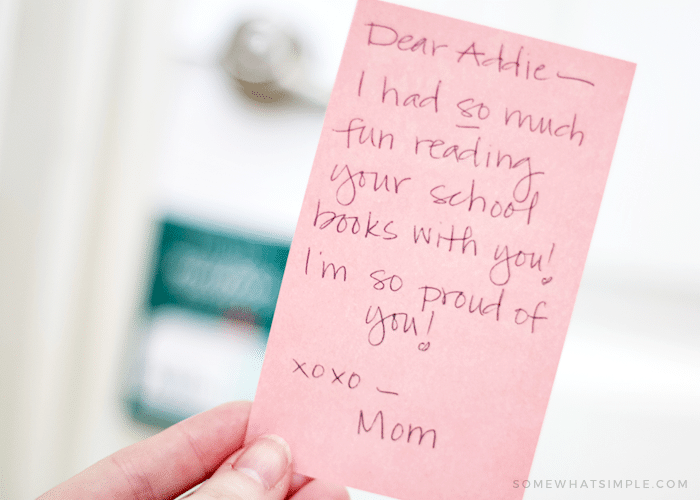 Dear Addie —
I had so much
fun reading
your school
books with you!
I'm so proud of
you!
xoxo —
Mom
SOMEWHATSIMPLE.COM